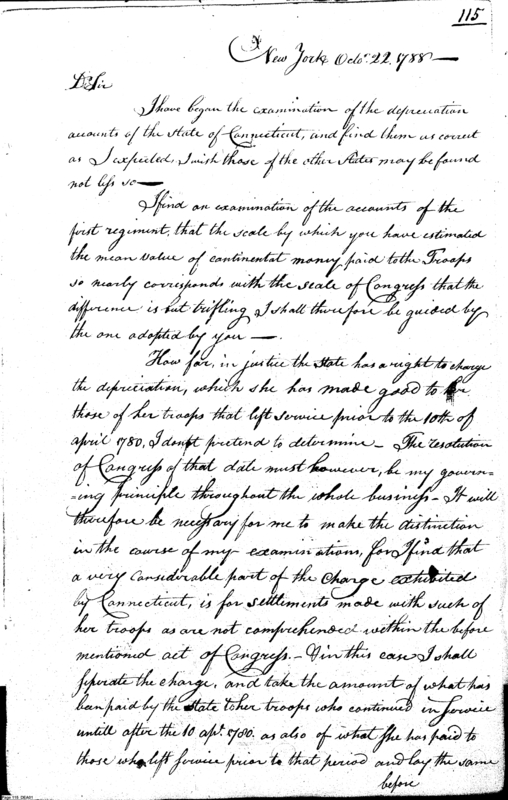 115
New York Octor. 22. 1788 —
Dr Sir
I have began the examination of the depreciation
accounts of the State of Connecticut, and find them as correct
as I expected, I wish those of the other States may be found
not less so —
I find on examination of the accounts of the
first regiment, that the scale by which you have estimated
the mean value of continental money, paid to the Troops
so nearly corresponds with the scale of Congress that the
difference is but trifling, I shall therefore be guided by
the one adopted by you —.
How far, in justice the State has a right to charge
the depreciation, which she has made good to
those of her troops that left service prior to the 10th of
april 1780, I dont pretend to determine — The resolution
of Congress of that date must however, be my govern-
-ing principle throughout the whole business — It will
therefore be necessary for me to make the distinction
in the course of my examinations, for I find that
a very considerable part of the charge exhibited
by Connecticut, is for settlements made with such of
her troops as are not comprehended within the before
mentioned act of Congress. — in this case I shall
seperate the charge, and take the amount of what has
been paid by the State to her troops who continued in service
untill after the 10 apl. 1780. as also of what she has paid to
those who left service prior to that period and lay the same
before
Page 115 DEA01